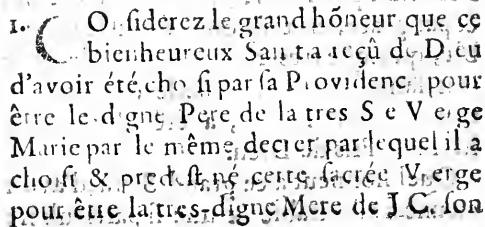 1. COnſiderez le grand hõneur que ce
bienheureux Saint a reçû de Dieu
d'avoir été choſi par ſa Providence pour
être le digne Pere de la tres Ste Vierge
Marie par le même decret par lequel il a
choiſi & predeſtiné cette ſacrée Vierge
pour être la tres-digne Mere de J C. ſon